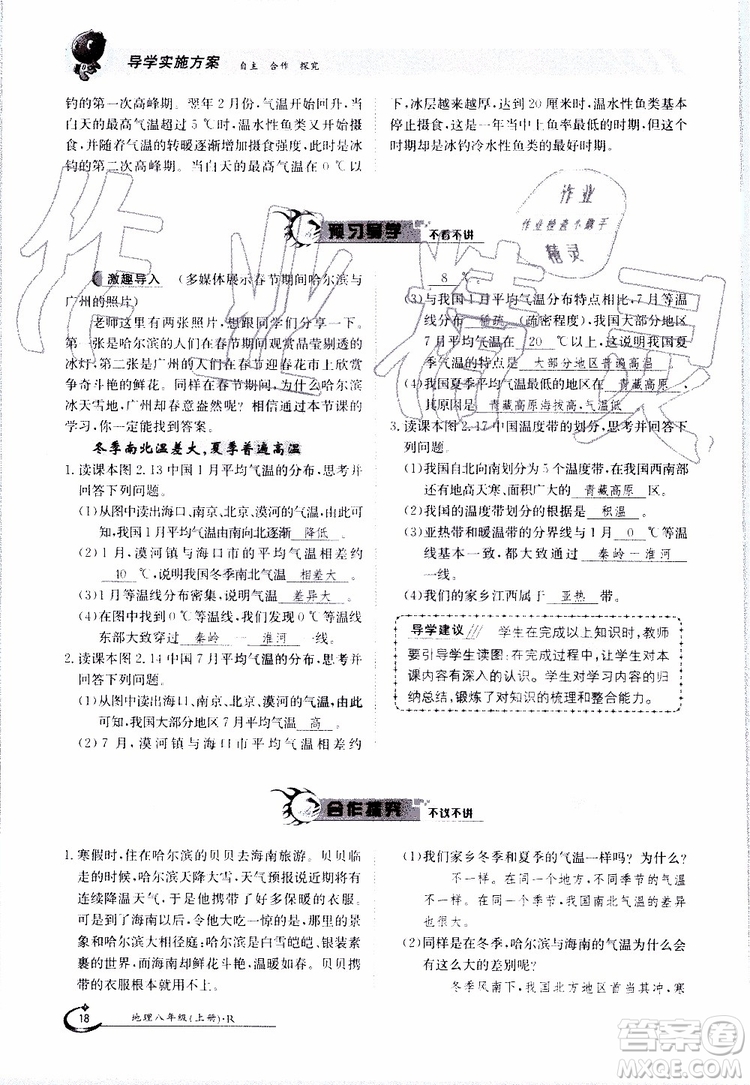 导学实施方案 自主 合作 探究
钓的第一次高峰期。翌年 2 月份，气温开始回升，当
白天的最高气温达到 5 ℃时，温水性鱼类开始摄
食，并随着气温的转暖逐渐增加摄食强度，此时是冰
钓的第二次高峰期。当白天的最高气温在 0 ℃以
下，冰层越来越厚，达到 20 厘米时，温水性鱼类基本
停止摄食，这是一年当中上鱼率最低的时期，但是，
这是冰钓冷水性鱼类的最好时期。
作业
作业检查小帮手
精灵
作业精灵
预习导学 不看不讲
激趣导入 （多媒体展示春节期间哈尔滨与
广州的照片）
老师这里有两张照片，与同学们分享一下。第
一张是哈尔滨的人们在春节期间观赏晶莹剔透的
冰灯，第二张是广州的人们在春节迎春花市上欣赏
争奇斗艳的鲜花。同样在春节，为什么一个哈尔滨
冰天雪地，广州却春意盎然呢？相信通过本节课的
学习，你一定能找到答案。
冬季南北温差大，夏季普遍高温
1. 读课本图 2.13 中国 1 月平均气温的分布，思考并
回答下列问题。
(1)从图中读出海口、南京、北京、漠河的平均气
温，说明我国冬季气温由南向北逐渐 降低 。
(2)1 月，漠河镇与海口市的平均气温相差约
10 ℃，说明我国冬季南北气温 相差大 。
(3)1 月等温线分布密集，说明气温 差异大 。
(4)从图中找到 0 ℃等温线，我们发现 0 ℃等温线
东部大致穿过 秦岭 — 淮河 一线。
2. 读课本图 2.14 中国 7 月平均气温的分布，思考并
回答下列问题。
(1)从图中读出海口、南京、北京、漠河的气温，说
明我国大部分地区 7 月平均气温 高 。
(2)7 月，漠河镇与海口市的平均气温相差约
8 ℃。
(3)与我国 1 月平均气温分布特点相比，7 月等温
线分布 稀疏 (疏密程度)，我国大部分地区
7 月平均气温在 20 ℃以上，这说明我国夏
季气温的特点是 大部分地区普遍高温 。
(4)我国夏季平均气温最低的地区在 青藏高原 ，
其原因是 青藏高原海拔高，气温低 。
3. 读课本图 2.17 中国温度带的划分，思考并回答下
列问题。
(1)我国自北向南划分为 5 个温度带，在我国西南部
还有地高天寒、面积广大的 青藏高原 区。
(2)我国的温度带划分的根据是 积温 。
(3)亚热带和暖温带的分界线与 1 月 0 ℃等
温线基本一致，都大致与 秦岭—淮河 一
线吻合。
(4)我们的家乡江西属于 亚热 带。
导学建议 学生在完成以上知识时，教师
要引导学生读图：在完成过程中，让学生对本
课内容有深入的认识。学生对学习内容的归
纳总结，锻炼了对知识的梳理和整合能力。
合作探究 不议不讲
1. 寒假时，住在哈尔滨的贝贝去海南旅游。贝贝临
走的时候，哈尔滨天降大雪，天气预报说近期将有
连续降温天气，于是贝贝带了好多保暖的衣服。
可是到了海南以后，令他大吃一惊的是，海南的景
象和哈尔滨大相径庭；哈尔滨是白雪皑皑、银装素
裹的世界，而海南却鲜花斗艳、温暖如春，贝贝携
带的衣服都没机会穿！
(1)我们家乡冬季和夏季的气温一样吗？为什么？
不一样。在同一个地方，不同季节的气温
不一样。在同一个季节，我国南北气温的差异
也很大。
(2)同样是在冬季，哈尔滨与海南的气温为什么有
这么大的差别呢？
冬季风南下，我国北方地区首当其冲，寒
18 地理八年级(上册)·R
答案圈